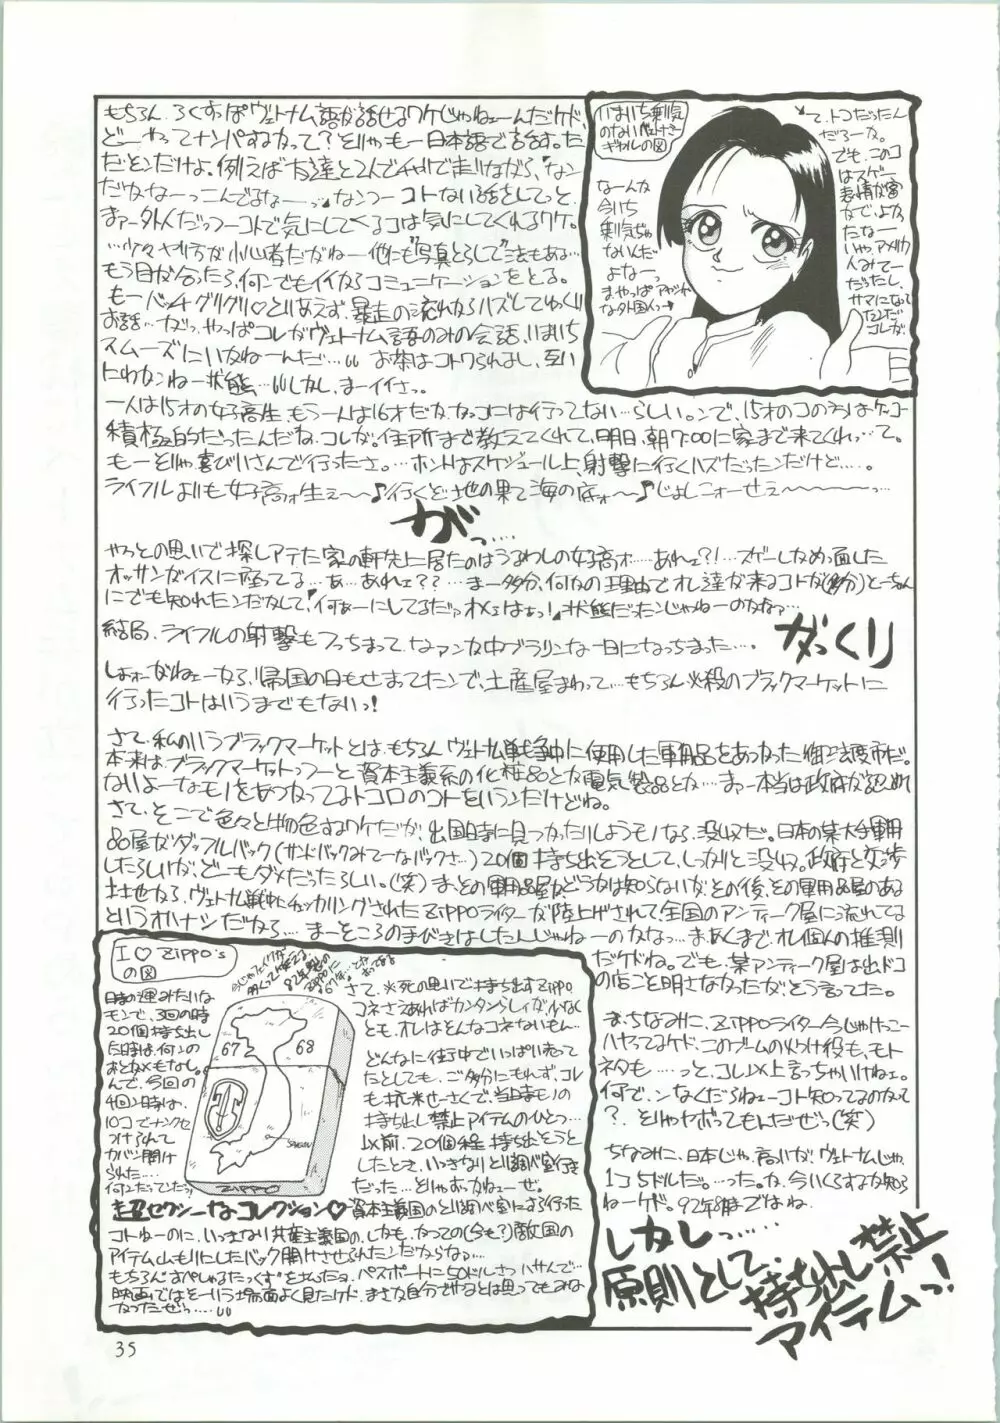 もちろん、ろくすっぽヴェトナム語が話せるワケじゃねェーんだケド、
どーやってナンパするかって?そりゃもー日本語で話す。た
だとンだけよ。例えば"友達と2人でチャリで走りながら、「なん
だかなーっこんでるなー…」なんつーコトない話をしてっと、
まァー外人だっつーコトで気にしてくるコは気にしてくれるワケ。
もう目が合ったら、何でもイイからコミュニケーションをとる。
もーバッチグリグリ♡とりあえず、暴走の流れからハズしてゆっくり
お話…がっ、やっぱコレがヴェトナム語のみの会話、いまいち
スムーズにいかねーんだ…。お茶はコトワられまし、互い
にわかンねー状態…。しかし、まーイイさ。
一人は15才の女子高生、もう一人は16才だがガッコには行ってない…らしい。ンで、15才のコの方はケッコー
積極的だったんだね、コレが。住所まで教えてくれて、明日、朝7:00に家まで来てくれ…って。
もーそりゃ喜びいさんで行ったさ。…ホントはスケジュール上、射撃に行くハズだったンだけど…。
ライフルよりも女子高ォ生ェ〜〜♪行くど、地の果て海の底ォ〜♪じょしこォーせェ〜〜〜…
がっ…
やっとの思いで探しアテた家の軒先に居たのはうるわしの女子高ォ…あれェ?!…スゲーしかめっ面した
オッサンがイスに座ってる…あ…あれェ??…まー多分、何かの理由でオレ達が来るコトが(多分)とーちゃん
にでも知れたンだかして「何ぁーにしてるだァオメェはぁっ!」状態だったンじゃねーのかなァ…
がっくり
結局、ライフルの射撃もフっちまって、なァンか中ブラリンな一日になっちまった…。
しょォーがねェーから、帰国の日もせまってたンで、土産屋まわって…もちろん必殺のブラックマーケットに
行ったコトはいうまでもないっ!
さて、私のいうブラックマーケットとは、もちろんヴェトナム戦争中に使用した軍用品をあつかった御法度市だ。
本来は、ブラックマーケットっつーと資本主義系の化粧品とか電気製品とか…まァー本当は政府が認めれ
ないよーなモノをあつかってるトコロのコトをいうンだけどね。
さて、そこで色々と物色するワケだが、出国時に見つかったりしようモノなら、没収だ。日本の某大手軍用
品屋がダッフルバック(サンドバックみてーなバックさ…)20個持ち出そうとして、しっかりと没収。政府と交渉
したらしいが、どーもダメだったらしい。(笑)まァその軍用品屋かどうかは知らないが、その後、その軍用品屋のある
土地から、ヴェトナム戦中にチェッカリングされたZIPPOライターが陸上げされて、全国のアンティーク屋に流れてる
というオハナシだから…まーそこらの手びきはしたんじゃねーのかなっ…まァあくまで、オレ個人の推測
だケドね。でも、某アンティーク屋は出ドコ
の店ごと明さなかったが、そう言ってた。
まっちなみに、ZIPPOライター今じゃけっこー
ハヤってるケド、このブームの火つけ役も、モト
ネタも……っと、コレ以上言っちゃいけねェ。
何で、ンなくだらねェーコト知ってるのかって
?そりゃヤボってもんだぜっ(笑)
ちなみに、日本じゃ、高いが、ヴェトナムじゃ、
1コ5ドルだ。…ったっか、今いくらするか知ら
ねーケド。92年8月ではね。
しかしっ……
原則として…
持ち出し禁止
アイテムっ!
いまいち刺激
のないヴェトナム
ギャルの図
なーんか
今いち
刺激ちゃ
ないんだ
よなーっ
って、トコだったん
だろーな。
でも、このコ
はスゲー
表情が豊
かで、よか
たなー
いやァアメリカ
人みてー
だったし、
サマになって
たンだ
コレが。
I♡ZIPPO's
の図
時の運みたいな
モンで、3回の時
20個持ち出し
た時は、何ンの
おとがめもなし。
んで、今回の
4回ン時は、
10コでナンクセ
つけられて
カバン開け
られた…
何ンだっていったい
67
68
SAIGON
ZIPPO
超セクシーなコレクション♡
さて、※死の思いで持ち出すZIPPO
コネさえあればカンタンらしィが、少なく
とも、オレはそんなコネないもん…
どんなに街ン中でいっぱい売って
たとしても、ご多分にもれず、コレ
も抗米せーさくで、当時モノの
持ち出し禁止アイテムのひとつ…
以前、20個程持ち出そうと
したとき、いっきなりとり調べ室行き
だった…とりゃおっかねェーぜ。
資本主義国のとり調べ室にすら行った
コトねーのに、いっきなり共産主義国の、しかも、かっての(今も?)敵国の
アイテム山もりにしたバック開けさせられたンだからなァ…
もちろん"すぺしゃるたっくす"を払んだョ、パスポートに50ドルさつハサんで…
映画ではそーいう場面よく見たケド、まさか自分でやるとは思ってもみな
かったぜっ…
35